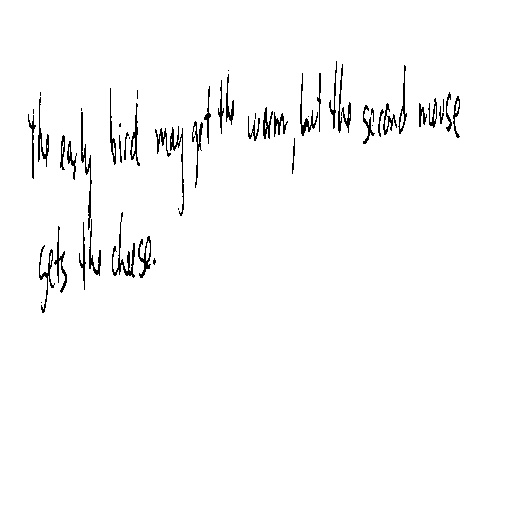 the early bird may get the worm, but the second mouse
gets the cheese.